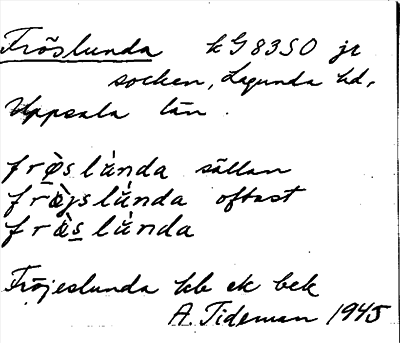 Fröslunda kG 8350 jr
socken, Lagunda hd,
Uppsala län.
frø̀slùnda sällan
fræ̀jslùnda oftast
frä̀slùnda
Fröjeslunda kb ek bek
A. Tideman 1945